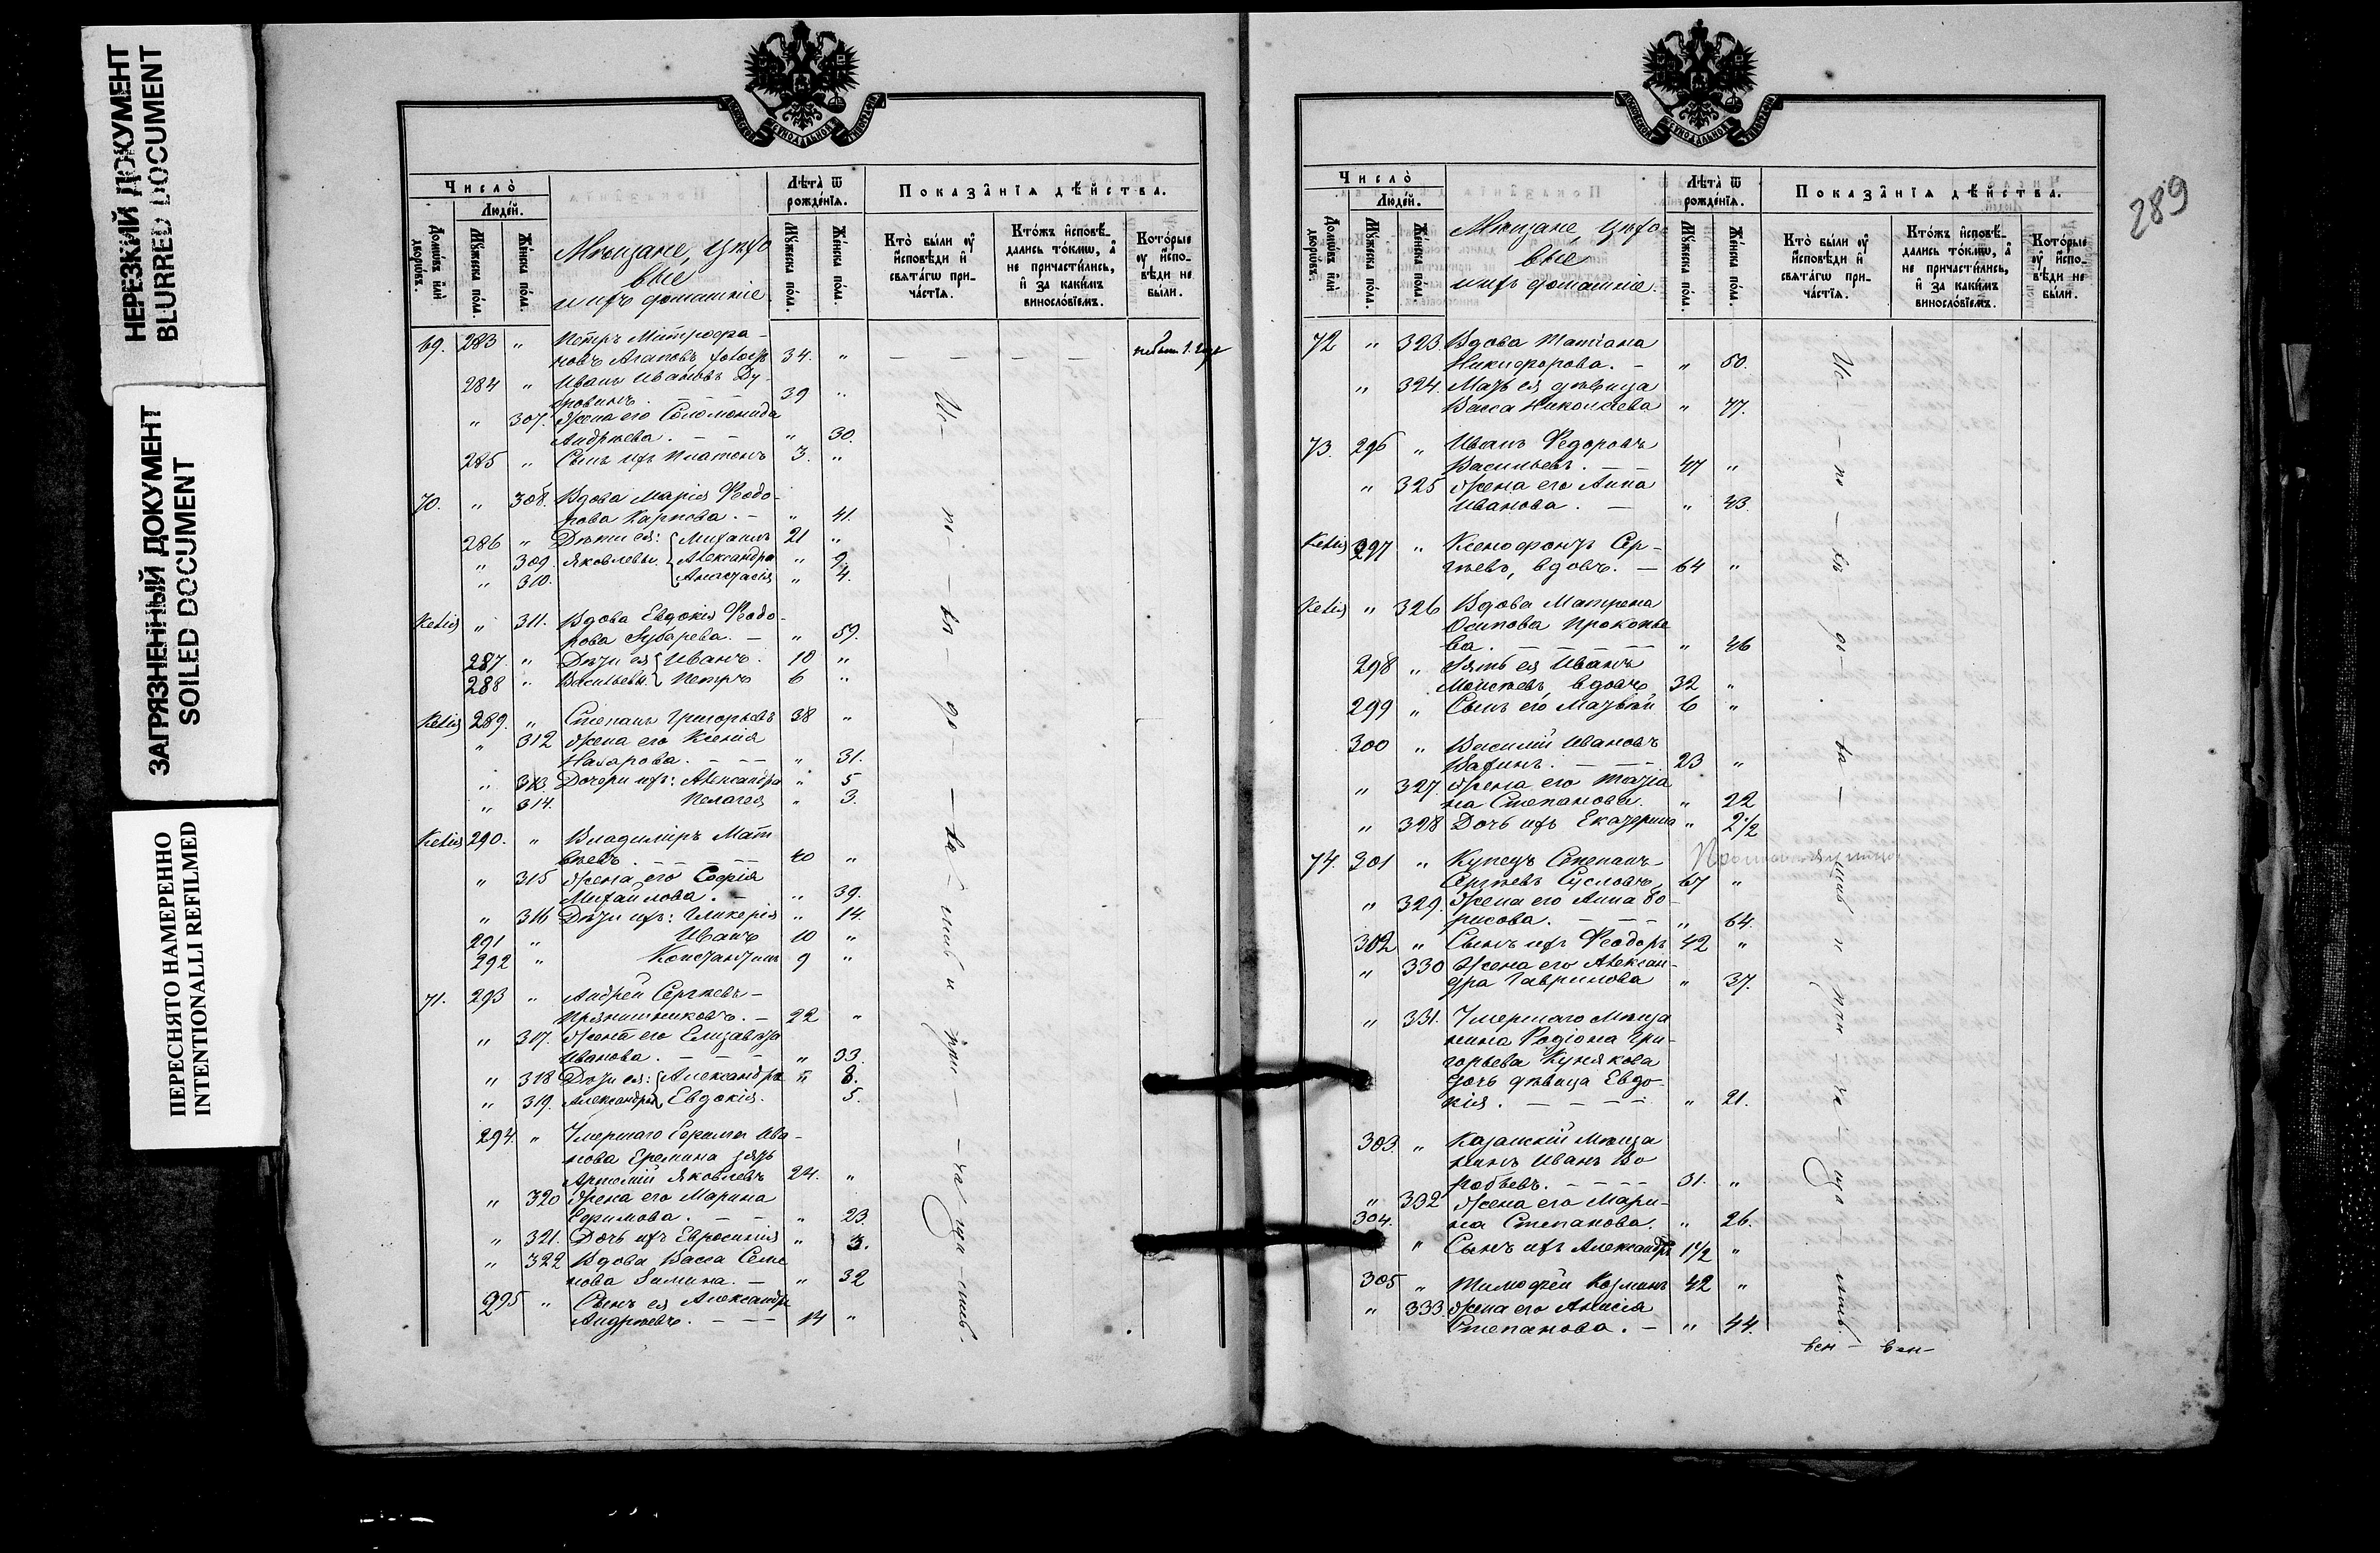 НЕРЕЗКИЙ ДОКУМЕНТ
BLURRED DOCUMENT
ЗАГРЯЗНЕННЫЙ ДОКУМЕНТ
SOILED DOCUMENT
ПЕРЕСНЯТО НАМЕРЕННО
INTENTIONALLI REFILMED
МОСКОВСКОЙ СѴНОДАЛЬНОЙ ТИПОГРАФІИ
Число̀
Люде́й.
Лѣта̀ ѿ рожде́нїѧ.
Показа̑нїѧ дѣ́йства.
Домѡ́въ и҆лѝ дворѡ́въ.
Мꙋ́жеска по́ла.
Же́нска по́ла.
Мѣщане, цѣхо
вые
и ихъ домашніе.
Мꙋ́жеска по́ла.
Же́нска по́ла.
Кто̀ бы́ли ᲂу҆ и҆сповѣ́ди и҆ свѧта́гѡ прича́стїѧ.
Кто́жъ и҆сповѣ́дались то́кмѡ, а҆ не причасти́лись, и҆ за каки́мъ винослѡ́вїемъ.
Кото́рые ᲂу҆ и҆сповѣ́ди не бы́ли.
69. 283 " Петръ Митрофа-
новъ Агаповъ 34. " — — — —
284 " Иванъ Ивановъ Ду-
ровинъ. 39 "
" 307. Жена его Соломонида
Андрѣева. — — " 30.
285 " Сынъ ихъ Платонъ 3. "
70. " 308. Вдова Марія Ѳеодо-
рова Карпова. — " 41.
286 " Дѣти ея: Михаилъ 21 "
" 309. Яковлевы. Александра " 9.
" 310. Анастасія " 4.
Келія " 311. Вдова Евдокія Ѳеодо-
рова Зубарева. — " 59.
287. " Дѣти ея Иванъ. 10 "
288 " Васильевы. Петръ 6 "
Келія 289. " Степанъ Григорьевъ 38 "
" 312 Жена его Ксенія
Назарова. — — — " 31.
" 313. Дочери ихъ: Александра " 5
" 314. Пелагея " 3.
Келія 290. " Владиміръ Мат
вѣевъ. — — — — 40 "
" 315 Жена его Софія
Михайлова. — " 39.
" 316 Дѣти ихъ: Гликерія " 14.
291 " Иванъ 10 "
292 " Константинъ 9 "
71. 293 " Андрей Сергѣевъ —
Прянишниковъ. — 22 "
" 317. Жена его Елизавета
Иванова. — — — " 33.
" 318 Дѣти ея: Александра " 8.
" 319. Александровы Евдокія. 5.
294. " Умершаго Ефима Ива-
нова Еремина зять
Артемій Яковлевъ 24. "
" 320 Жена его Марина
Ефимова. — — " 23.
" 321. Дочь ихъ Евросинія " 3.
" 322 Вдова Васса Семе
нова Зимина. — " 32
295 " Сынъ ея Александръ
Андрѣевъ. — — — 14 "
Ис — по — вѣ — до — ва — лись и при — ча — ща — лись.
289
МОСКОВСКОЙ СѴНОДАЛЬНОЙ ТИПОГРАФІИ
Число̀
Люде́й.
Лѣта̀ ѿ рожде́нїѧ.
Показа̑нїѧ дѣ́йства.
Домѡ́въ и҆лѝ дворѡ́въ.
Мꙋ́жеска по́ла.
Же́нска по́ла.
Мѣщане, цѣхо
вые
и ихъ домашніе.
Мꙋ́жеска по́ла.
Же́нска по́ла.
Кто̀ бы́ли ᲂу҆ и҆сповѣ́ди и҆ свѧта́гѡ прича́стїѧ.
Кто́жъ и҆сповѣ́дались то́кмѡ, а҆ не причасти́лись, и҆ за каки́мъ винослѡ́вїемъ.
Кото́рые ᲂу҆ и҆сповѣ́ди не бы́ли.
72 " 323. Вдова Татіана
Никифорова. — " 50.
" 324. Мать ея дѣвица
Васса Николаева " 77.
73. 296 " Иванъ Ѳедоровъ
Васильевъ. — — 47 "
" 325 Жена его Анна
Иванова. — " 43.
Келія 297 " Ксенофонтъ Сер-
гѣевъ, вдовъ. — 64 "
Келія " 326 Вдова Матрена
Осипова Прокопье
ва. — — — — — " 46
298 " Зять ея Иванъ
Моисѣевъ, вдовъ 32 "
299 " Сынъ его Матвѣй 6 "
300 " Василій Ивановъ
Вахинъ. — — — 23 "
" 327. Жена его Татіа
на Степанова. " 22
" 328 Дочь ихъ Екатерина " 2 1/2
74. 301 " Купецъ Степанъ
Сергѣевъ Сусловъ 67 "
" 329. Жена его Анна Бо-
рисова. — — — " 64.
302 " Сынъ ихъ Ѳеодоръ 42 "
" 330 Жена его Алексан-
дра Гаврилова " 37.
" 331. Умершаго мѣща
нина Родіона Гри-
горьева Кунякова
дочь дѣвица Евдо-
кія. — — — — " 21.
303. " Казанскій мѣща
нинъ Иванъ Во
робьевъ. — — — — 31. "
" 332 Жена его Мари-
на Степанова. " 26.
304. " Сынъ ихъ Александръ 1 1/2 "
305 " Тимофей Козминъ 42 "
" 333. Жена его Анисія
Степанова. — " 44.
Ис — по — вѣ — до — ва — лись и при — ча — ща — лись.